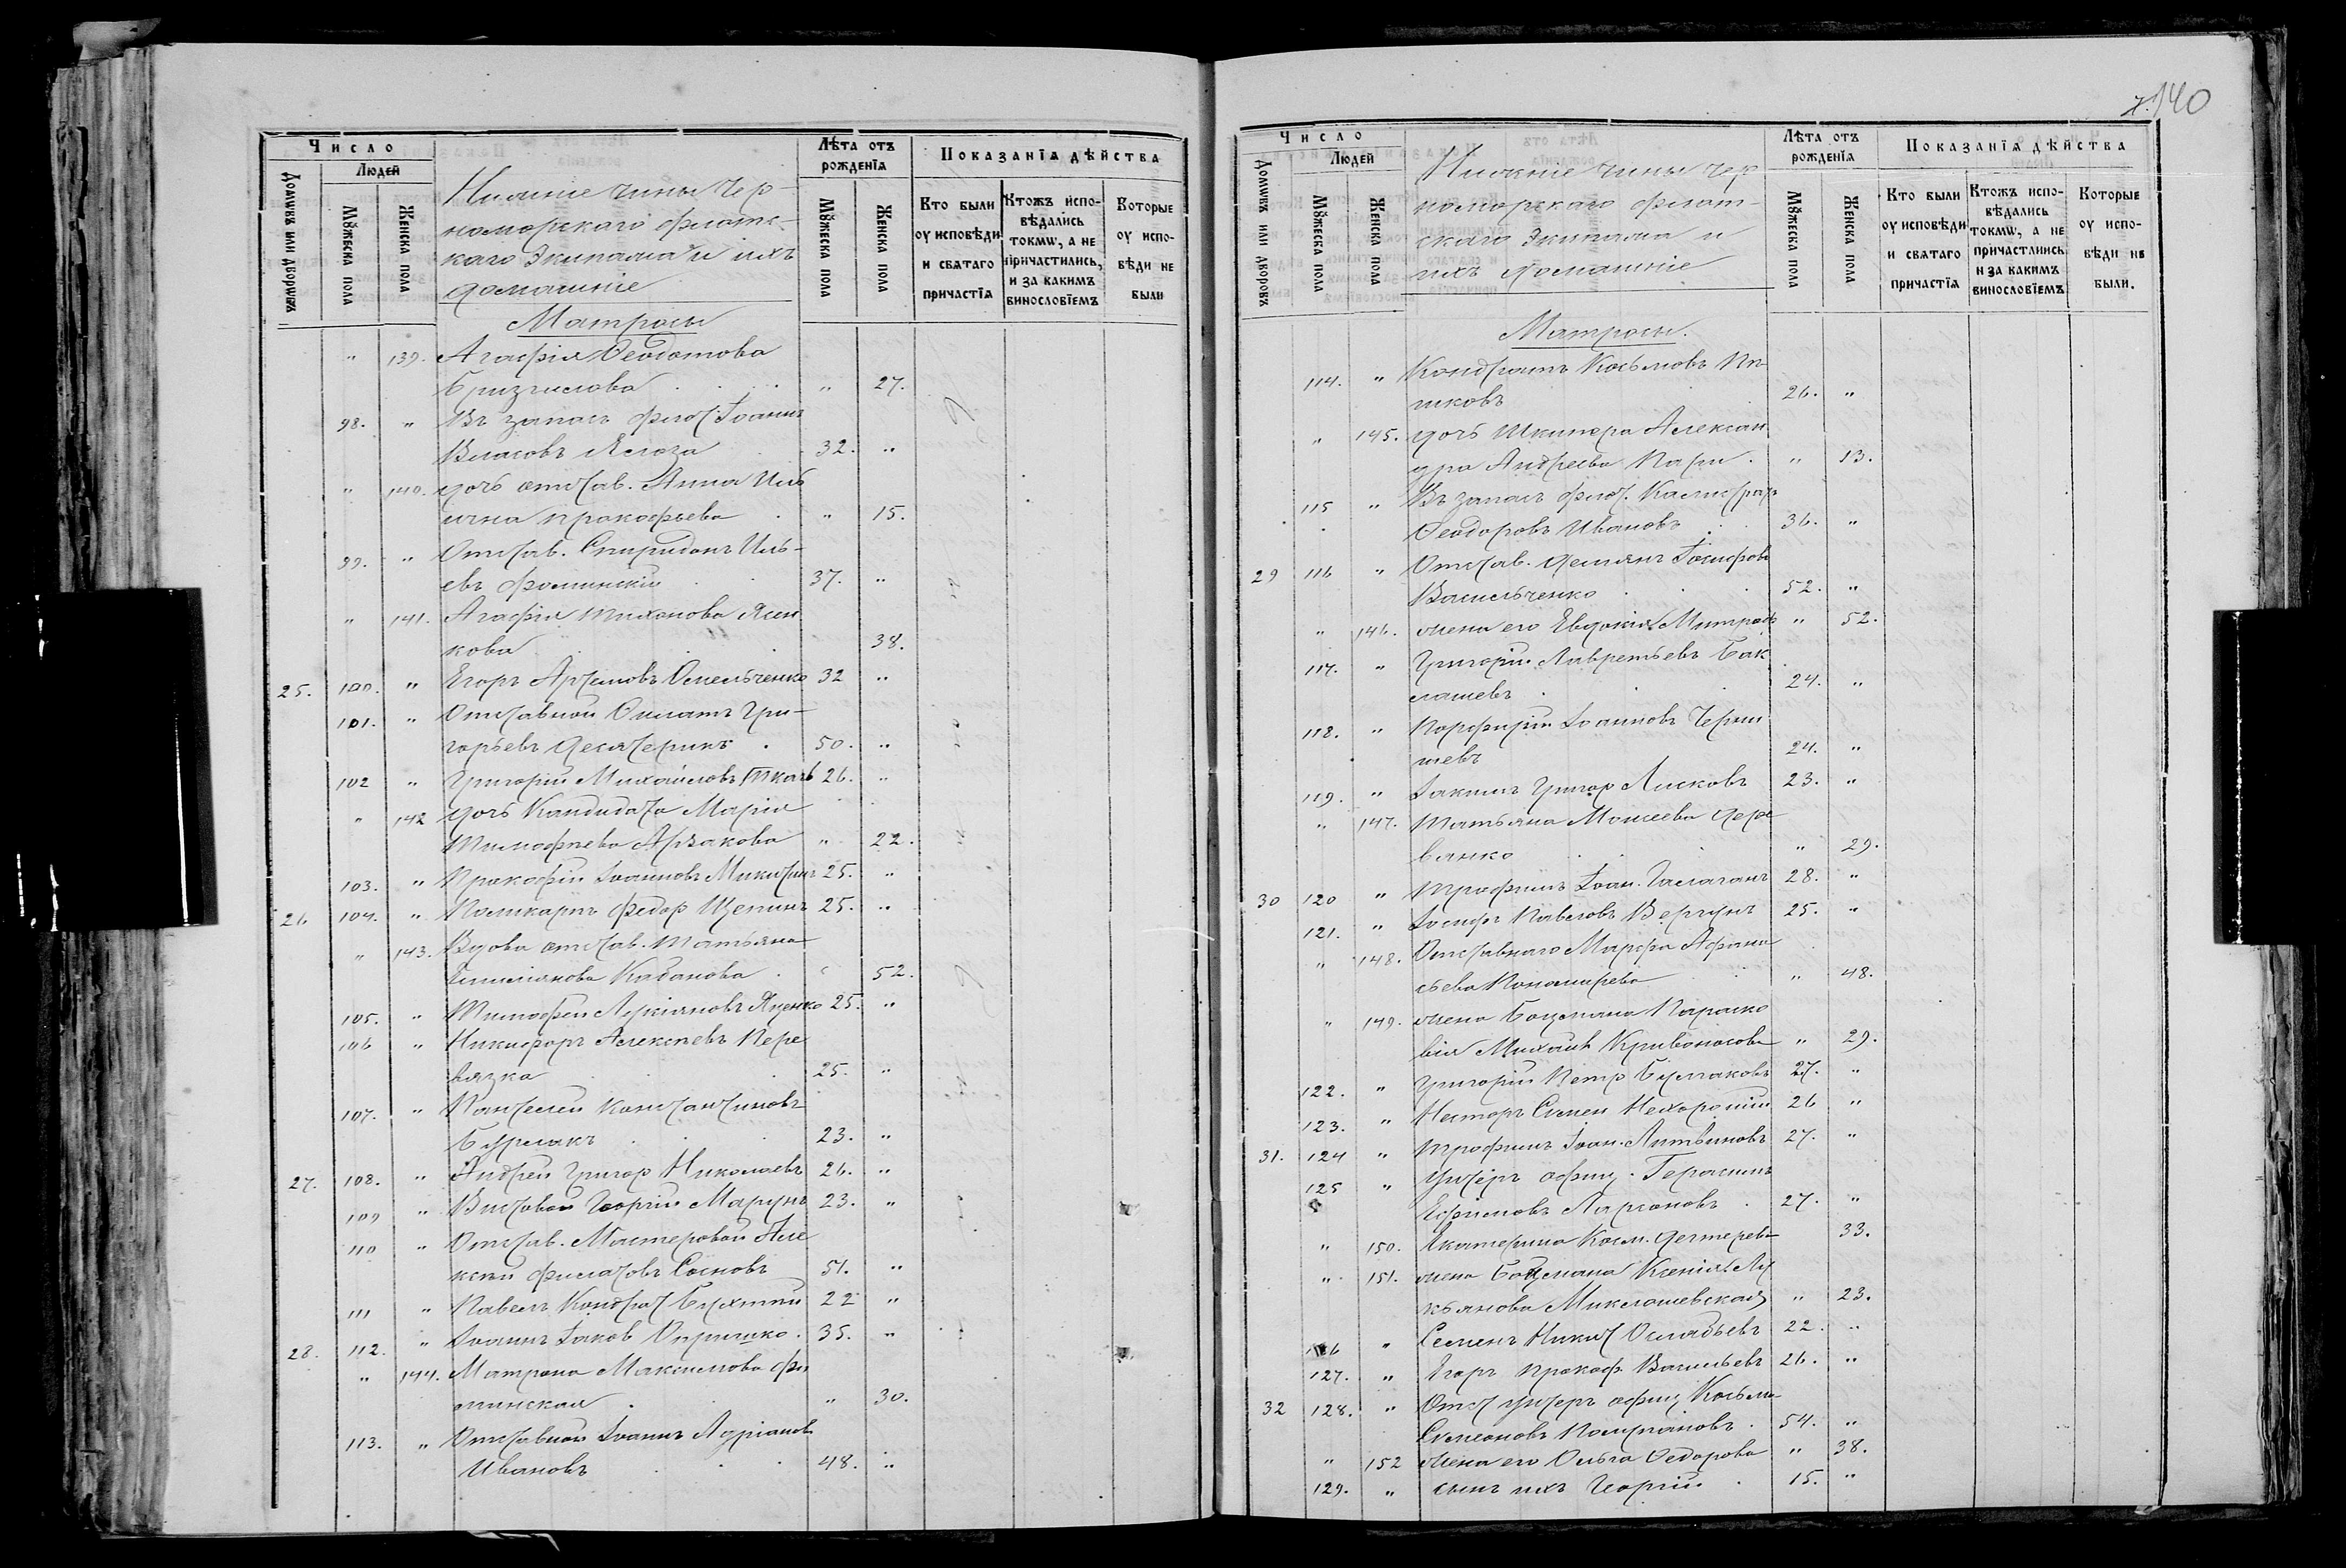 140
Число
Людей
Домѡвъ или дворѡвъ
Мꙋжеска пола
Женска пола
Нижніе чины Чер-
номорскаго флотс-
каго Экипажа и ихъ
домашніе
Лѣта отъ рожденїѧ
Мꙋжеска пола
Женска пола
Показанїѧ дѣйства
Кто были оу исповѣди и свѧтаго причастїѧ
Ктожъ испо-вѣдались токмѡ, а не причастились, и за какимъ винословїемъ
Которые оу испо-вѣди не были
Матросы
" 139. Агафія Ѳеодотова
" 27.
98. " Въ запас. флот. Іоаннъ
Власовъ 32. "
" 140. дочь отстав. Анна Иль
ична Прокофьева " 15.
99. " Отстав. Спиридонъ Иль-
евъ Фоминскій 37. "
" 141. Агафія Тихонова
кова 38.
25. 100. " Егоръ Артемовъ Омельченко 32 "
101. " Отставной Игнатъ Гри-
горьевъ Десятерикъ 50. "
102 " Григорій Михайловъ Ткачъ 26. "
" 142 дочь Кандидата Марія
Тимофеева " 22.
103. " Прокофій Іоанновъ Микитинъ 25. "
26 104. " Поликарпъ Федор Щепинъ 25. "
" 143. Вдова отстав. Татьяна
Емельянова Кабанова " 52.
105. " Тимофей Лукіяновъ Яценко 25. "
106 " Никифоръ Алексѣевъ Пере
вязка 25. "
107. " Пантелей Константиновъ
Бурлакъ 23. "
27. 108. " Андрей Григор Николаевъ 26. "
109 " Вистовой Георгій Марунъ 23. "
110 " Отстав. Мастеровой Але
ксѣй Филатовъ Сосновъ 51. "
111 " Павелъ Кондрат 22 "
28. 112. " Іоаннъ Іаков Опришко 35. "
" 144. Матрона Максимова Фо
минская " 30.
113. " Отставной Іоаннъ Адріанов
Ивановъ 48. "
Число
Людей
Домѡвъ или дворовъ
Мꙋжеска пола
Женска пола
Нижніе чины Чер
номорскаго флот-
скаго Экипажа и
ихъ домашніе
Лѣта отъ рожденїѧ
Мꙋжеска пола
Женска пола
Показанїѧ дѣйства
Кто были оу исповѣди и свѧтаго причастїѧ
Ктожъ испо-вѣдались токмѡ, а не причастились и за какимъ винословїемъ
Которые оу испо-вѣди не были.
Матросы.
114. " Кондратъ Косьмовъ
26. "
" 145. дочь Шкипера Алексан
дра Андреева " 13.
115 " Въ запас флот. Калистратъ
Ѳеодоровъ Ивановъ 36. "
29 116 " Отстав. Демьянъ Іосифовъ
Васильченко 52. "
" 146. жена его Евдокія Митроф " 52.
117. " Григорій Лаврентьевъ Бак
лашевъ 24. "
118. " Порфирій Іоанновъ Черны
шевъ 24. "
119. " Іакимъ Григор Лисковъ 23. "
" 147. Татьяна Моисеева Дере
вянко " 29.
30 120 " Трофимъ Іоан. Галаганъ 28. "
121. " Іосифъ Павловъ Вергунъ 25. "
" 148. Отставнаго Марфа Афана
сьева Пономарева " 48.
" 149. жена Боцмана Параско
вія Михаил Кривоносова " 29.
122. " Григорій Петр Бурлаковъ 27. "
123. " Несторъ Симеон Нехорошій 26 "
31. 124 " Трофимъ Іоан. Литвиновъ 27. "
125 " Унтеръ офиц. Герасимъ
Ефимовъ Ларіоновъ 27. "
" 150. Екатерина Косм. Дегтерева 33.
" 151. жена Боцмана Ксенія Лу
кьянова Миклашевская " 23.
126 " Семенъ Никит 22. "
127. " Егоръ Прокоф. Васильевъ 26. "
32 128. " Отст унтеръ офиц Косьма
Симеоновъ 54. "
" 152 жена его Ольга Ѳедорова " 38.
129. " сынъ ихъ Георгій 15. "